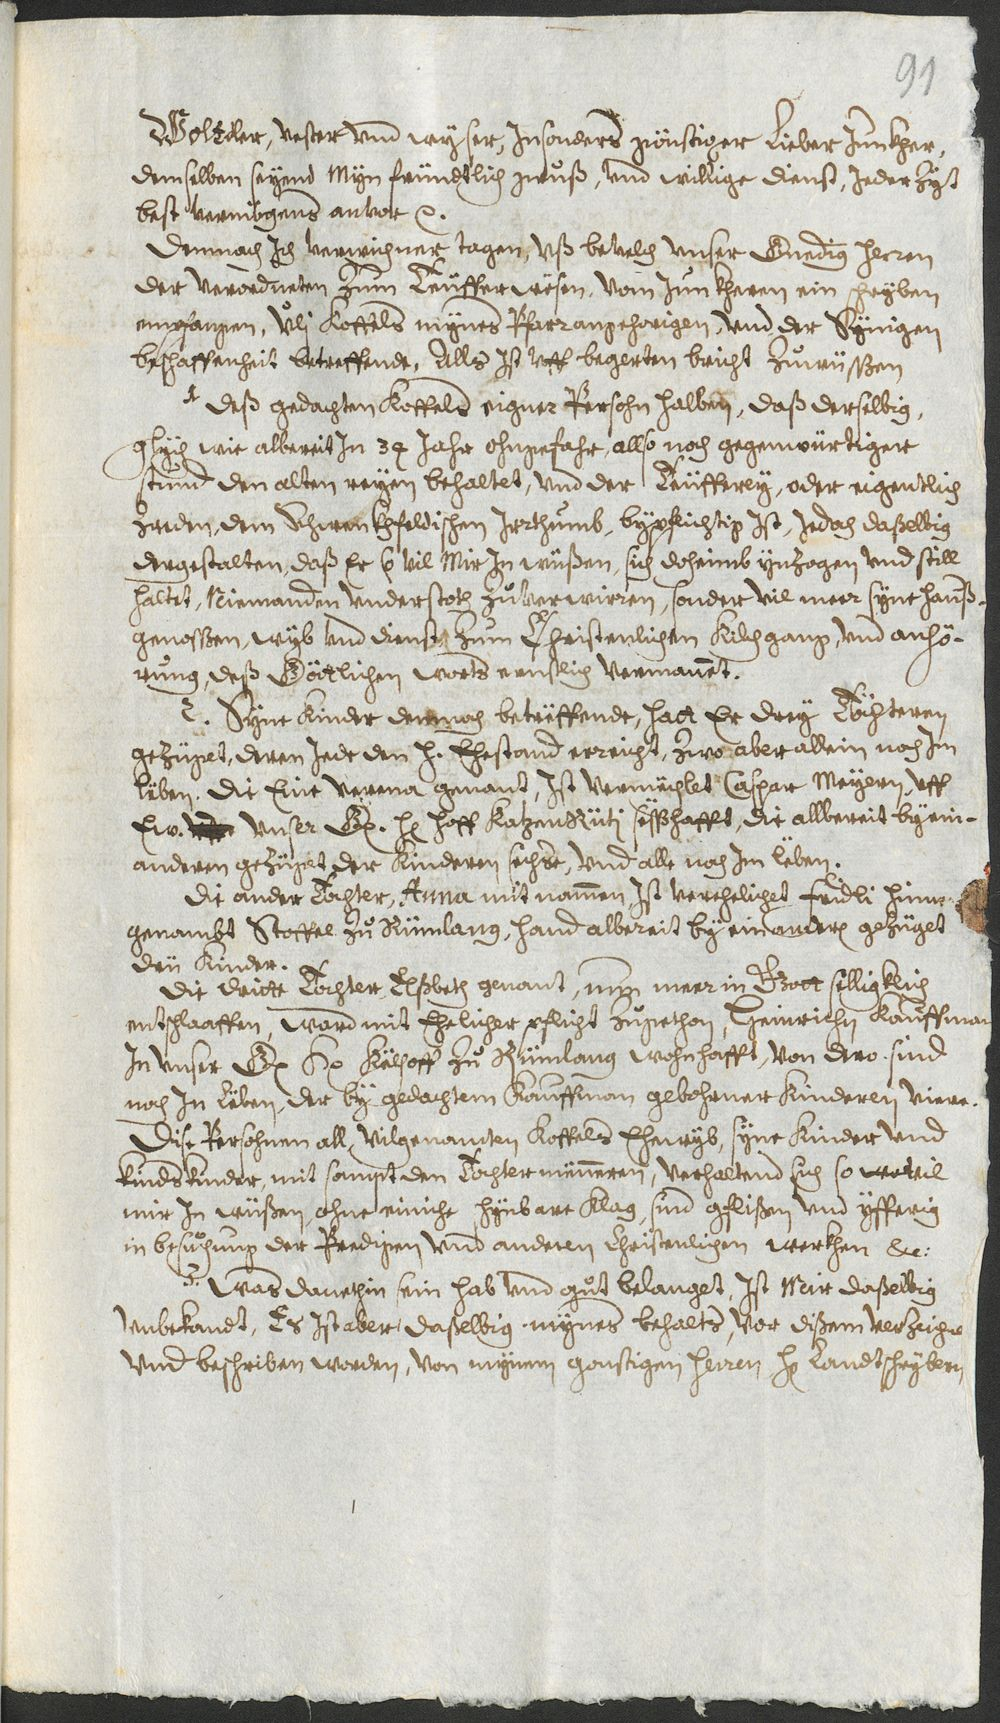 91
Wol Edler, vester und wyser, Insonders günstiger Lieber Junkher,
demselben seyend Myn fründtlich gruß, und willige dienst, Jeder Zyt
best vermögens anvor
Demnach Ich verwichner tagen, uß bevelch unser Gnedig Herren
der verordneten Zum Teüffer wesen, vom Junkheren ein schryben
empfangen, Uli Koffels mynes Pfarrangehörigen, und der Synigen
beschaffenheit betreffende, Alls Ist uff begerten bricht Zuwüssen
1 deß gedachten Koffels eigner Persohn halben, daß derselbig,
glych wie albereit In 34 Jahr ohngefahr, also noch gegenwürtiger
stund den alten reyen behaltet, und der Teüfferey, oder eigentlich
Zreden, dem Schwenkhfeldischen Irrthumb, bypflichtig Ist, Jedoch daßelbig
dergestalten, daß Er so vil Mir In wüßen, sich doheimb ynzogen und still
haltet, Niemanden understoth Zuverwirren, sonder vil meer syne hauß-
genoßen, wyb und dienst, Zum Christenlichen Kilchgang, und anhö-
rung, deß Göttlichen worts ernstlich vermanet.
2. Syne Kinder demnach beträffende, hatt Er drey Töchteren
gezüget, deren Jede den H. Ehestand erreicht, Zwo aber allein noch Im
läben. Die Eine Verena genant, Ist vermächlet Caspar Meyern, uff
Euw. unser Gn. Hn Hoff KatzenRüti säßhafft, die allbereit byein-
anderen gezüget der Kinderen sechse, und alle noch Im läben.
Die ander Tochter, Anna mit namen, Ist verehelichet Fridli
genambt Stoffel Zu Rümlang, hand albereit by ein anderen gezüget
drü Kinder.
Die dritte Tochter Elßbeth genant, nun meer in Gott selligklich
entschlaaffen, ward mit Ehelicher pflicht Zugethon, Heinrichen Kauffman
In unser Gn Hn Kelhoff Zu Rümlang wohnhafft, von dero sind
noch In läben, der by gedachtem Kauffman gebohrner Kinderen viere.
Dise Persohnen all, vilgenanten Koffels Ehewyb, syne Kinder und
kindskinder, mit sampt den Tochtermäneren, verhaltend sich so vil
mir In wüßen, ohne einiche schynbare Klag, sind gflißen und yfferig
in besuchung der Predigen und anderen Christenlichen werkhen &c:
3. Was danethin sein hab und gut belanget, Ist Mir daßelbig
unbekandt, Es Ist aber daßelbig mynes behalts, vor dißem verzeignet
und beschriben worden, von mynem günstigen Herren Hn Landtschrybern